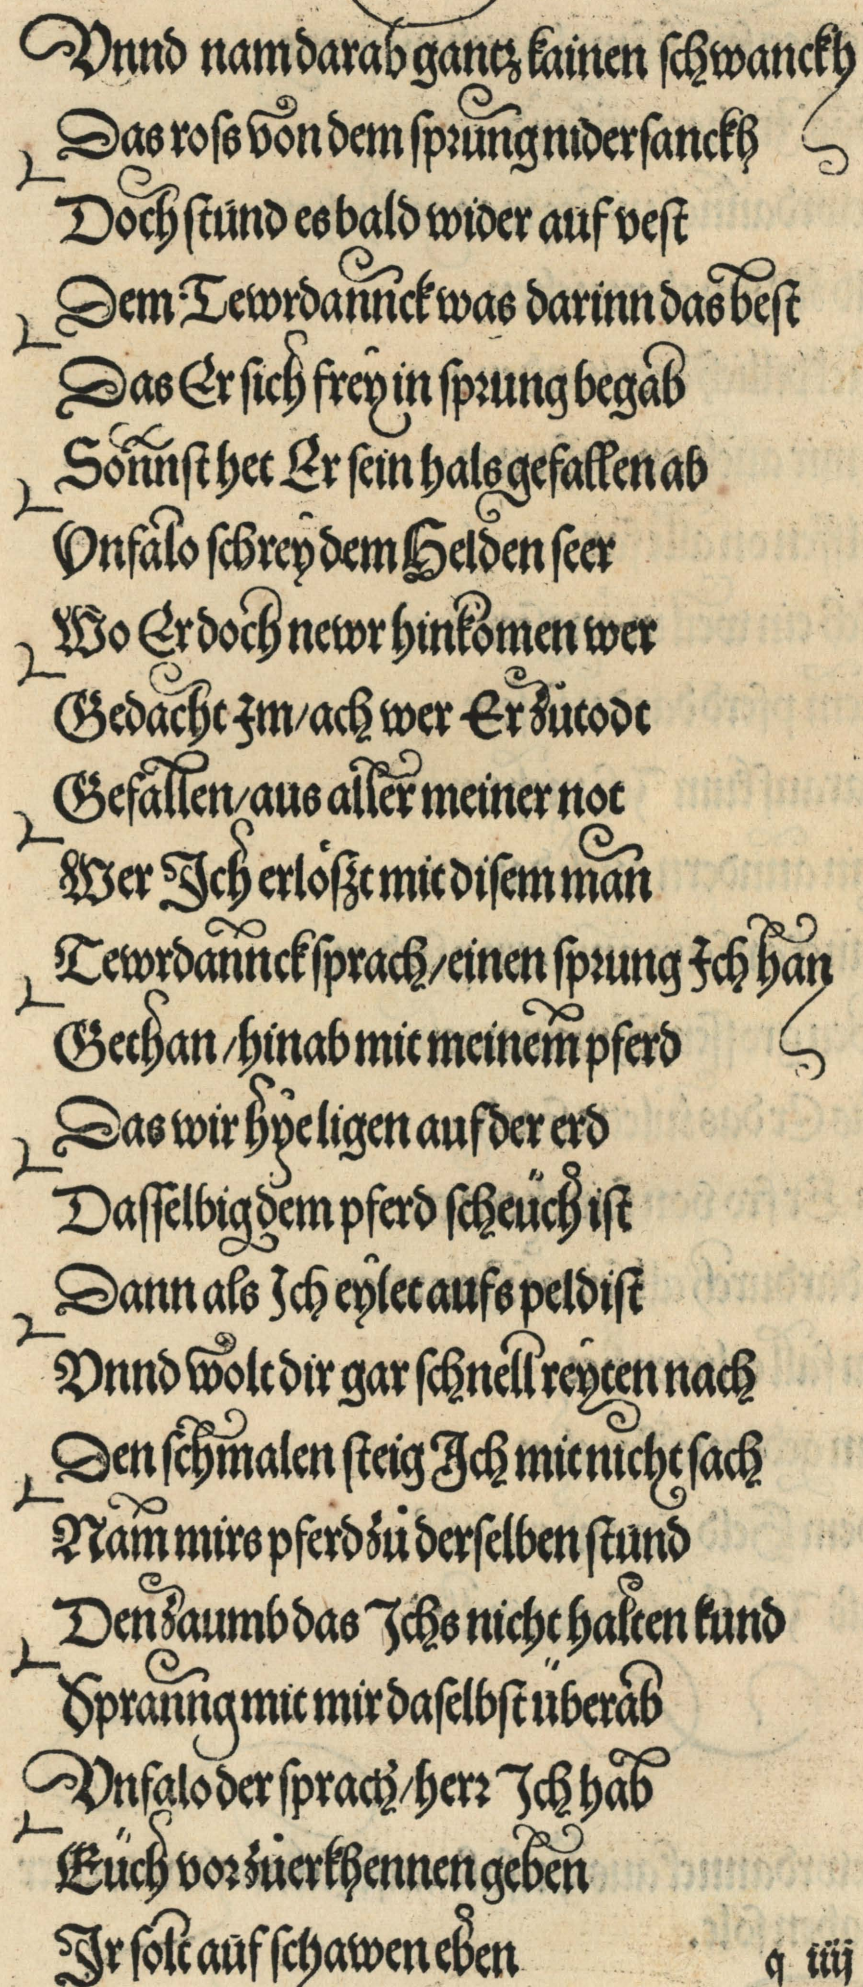 Vnnd nam darab gantz kainen schwanckh
Das ross von dem sprung nidersanckh
Doch stund es bald wider auf vest
Dem Tewrdannck was darinn das best
Das Er sich frey in sprung begab
Sonnst het Er sein hals gefallen ab
Vnfalo schrey dem Helden seer
Wo Er doch newr hinkomen wer
Gedacht Im/ach wer Er zůtodt
Gefallen/aus aller meiner not
Wer Ich erlöszt mit disem man
Tewrdannck sprach/einen sprung Ich han
Gethan/hinab mit meinem pferd
Das wir hye ligen auf der erd
Dasselbig dem pferd scheüch ist
Dann als Ich eylet aufs peldist
Vnnd wolt dir gar schnell reyten nach
Den schmalen steig Ich mit nicht sach
Nam mirs pferd zů derselben stund
Den zaumb das Ichs nicht halten kund
Spranng mit mir daselbst überab
Vnfalo der sprach/herr Ich hab
Eüch vor zůerkhennen geben
Ir solt auf schawen eben
q iiij